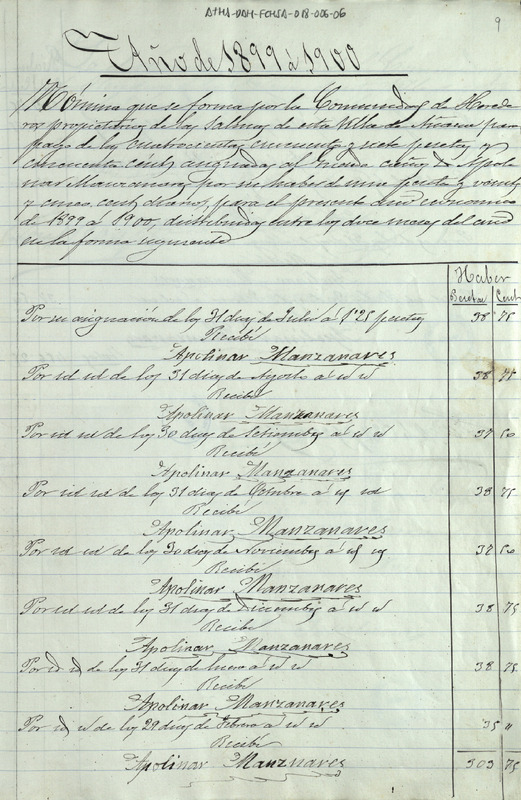 ATHA-DAH-FCHSA-018-006-06
9
Año de 1899 á 1900
Nómina que se forma por la Comunidad de Herede
ros propietarios de las salinas de esta villa de Añana para
pago de las cuatrocientas cincuenta y siete pesetas y
cincuenta cents asignadas al de Apoli
nar Manzanares por su haber de una peseta y veinte
y cinco cents diarios, para el presente año economico
de 1899 á 1900, distribuidas entre los doce meses del año
en la forma siguiente
Haber
Pesetas Cents
Por su asignación de los 31 dias de Julio á 1'25 pesetas 38 75
Recibí
Apolinar Manzanares
Por id id de los 31 dias de Agosto á id id 38 75
Recibí
Apolinar Manzanares
Por id id de los 30 dias de Setiembre á id id 37 50
Recibí
Apolinar Manzanares
Por id id de los 31 dias de Octubre á id id 38 75
Recibí
Apolinar Manzanares
Por id id de los 30 dias de Noviembre á id id 37 50
Recibí
Apolinar Manzanares
Por id id de los 31 dias de Diciembre á id id 38 75
Recibí
Apolinar Manzanares
Por id id de los 31 dias de Enero á id id 38 75
Recibí
Apolinar Manzanares
Por id id de los 28 dias de Febrero á id id 35 "
Recibí
Apolinar Manznares
303 75